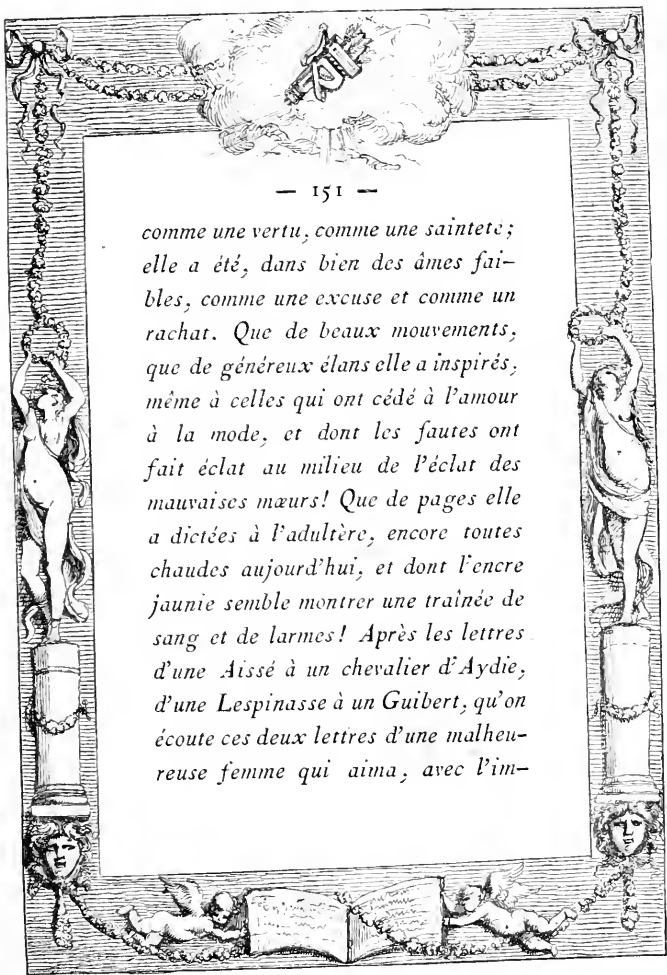 — 151 —
comme une vertu, comme une sainteté;
elle a été, dans bien des âmes fai-
bles, comme une excuse et comme un
rachat. Que de beaux mouvements,
que de généreux élans elle a inspirés,
même à celles qui ont cédé à l'amour
à la mode, et dont les fautes ont
fait éclat au milieu de l'éclat des
mauvaises mœurs! Que de pages elle
a dictées à l'adultère, encore toutes
chaudes aujourd'hui, et dont l'encre
jaunie semble montrer une traînée de
sang et de larmes! Après les lettres
d'une Aissé à un chevalier d'Aydie,
d'une Lespinasse à un Guibert, qu'on
écoute ces deux lettres d'une malheu-
reuse femme qui aima, avec l'im-